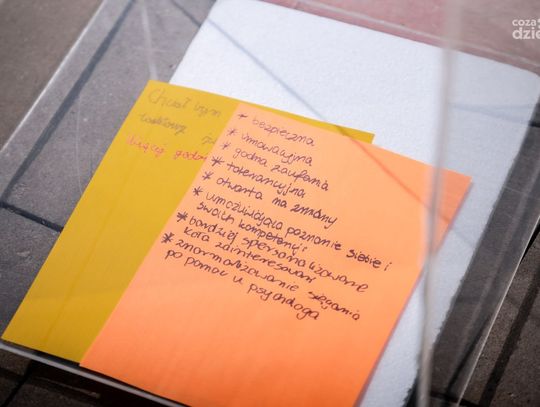 coza
dzie
Chciał bym
więcej godzi
* bezpieczna
* innowacyjna
* godna zaufania
* tolerancyjna
* otwarta na zmiany
* umożliwiająca poznanie siebie i
swoich kompetencji
* bardziej spersonalizowane
koła zainteresowań
* znormalizowanie sięgania
po pomoc u psychologa